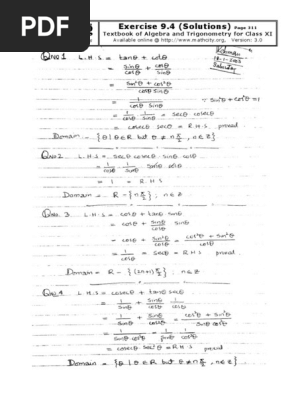 PDF
Exercise 9.4 (Solutions) Page 311
Textbook of Algebra and Trigonometry for Class XI
Available online @ http://www.mathcity.org, Version: 3.0
Q No 1 L.H.S = tanθ + cotθ
= sinθ/cosθ + cosθ/sinθ
= (sin²θ + cos²θ)/(cosθ sinθ)
= 1/(cosθ sinθ) ∵ sin²θ + cos²θ = 1
= 1/cosθ · 1/sinθ = secθ cosecθ
= cosecθ secθ = R.H.S proved
Domain = {θ | θ ∈ R but θ ≠ nπ/2, n ∈ z}
Q No 2 L.H.S = secθ cosecθ sinθ cosθ
= 1/cosθ · 1/sinθ · sinθ cosθ
= 1 = R.H.S
Domain = R - {nπ/2} ; n ∈ z
Q No. 3 L.H.S = cosθ + tanθ sinθ
= cosθ + sinθ/cosθ sinθ
= cosθ + sin²θ/cosθ = (cos²θ + sin²θ)/cosθ
= 1/cosθ = secθ = R.H.S proved
Domain = R - {(2n+1)π/2} ; n ∈ z
Q No. 4 L.H.S = cosecθ + tanθ secθ
= 1/sinθ + sinθ/cosθ · 1/cosθ
= 1/sinθ + sinθ/cos²θ = (cos²θ + sin²θ)/(sinθ cos²θ)
= 1/(sinθ cos²θ) = 1/sinθ · 1/cos²θ
= cosecθ sec²θ = R.H.S proved
Domain = {θ | θ ∈ R but θ ≠ nπ/2, n ∈ z}